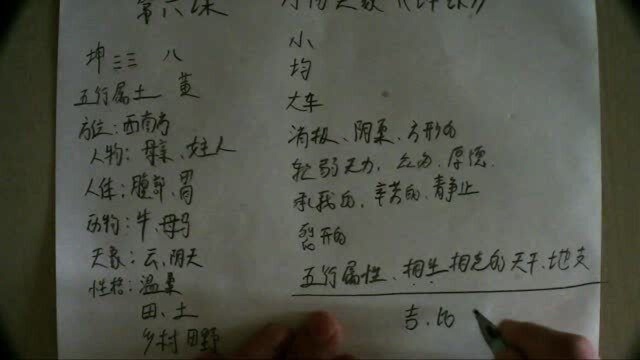 第六课
坤 ☷ 八
五行属土 黄
方位：西南方
人物：母亲、女主人
人体：腹部、胃
动物：牛、母马
天象：云、阴天
性格：温柔
田、土
乡村 田野
小
均
大车
消极、阴柔、方形的
软弱无力、厚德、
承载的、辛苦的、静止
裂开的
五行属性、相生相克的天干、地支
吉、凶